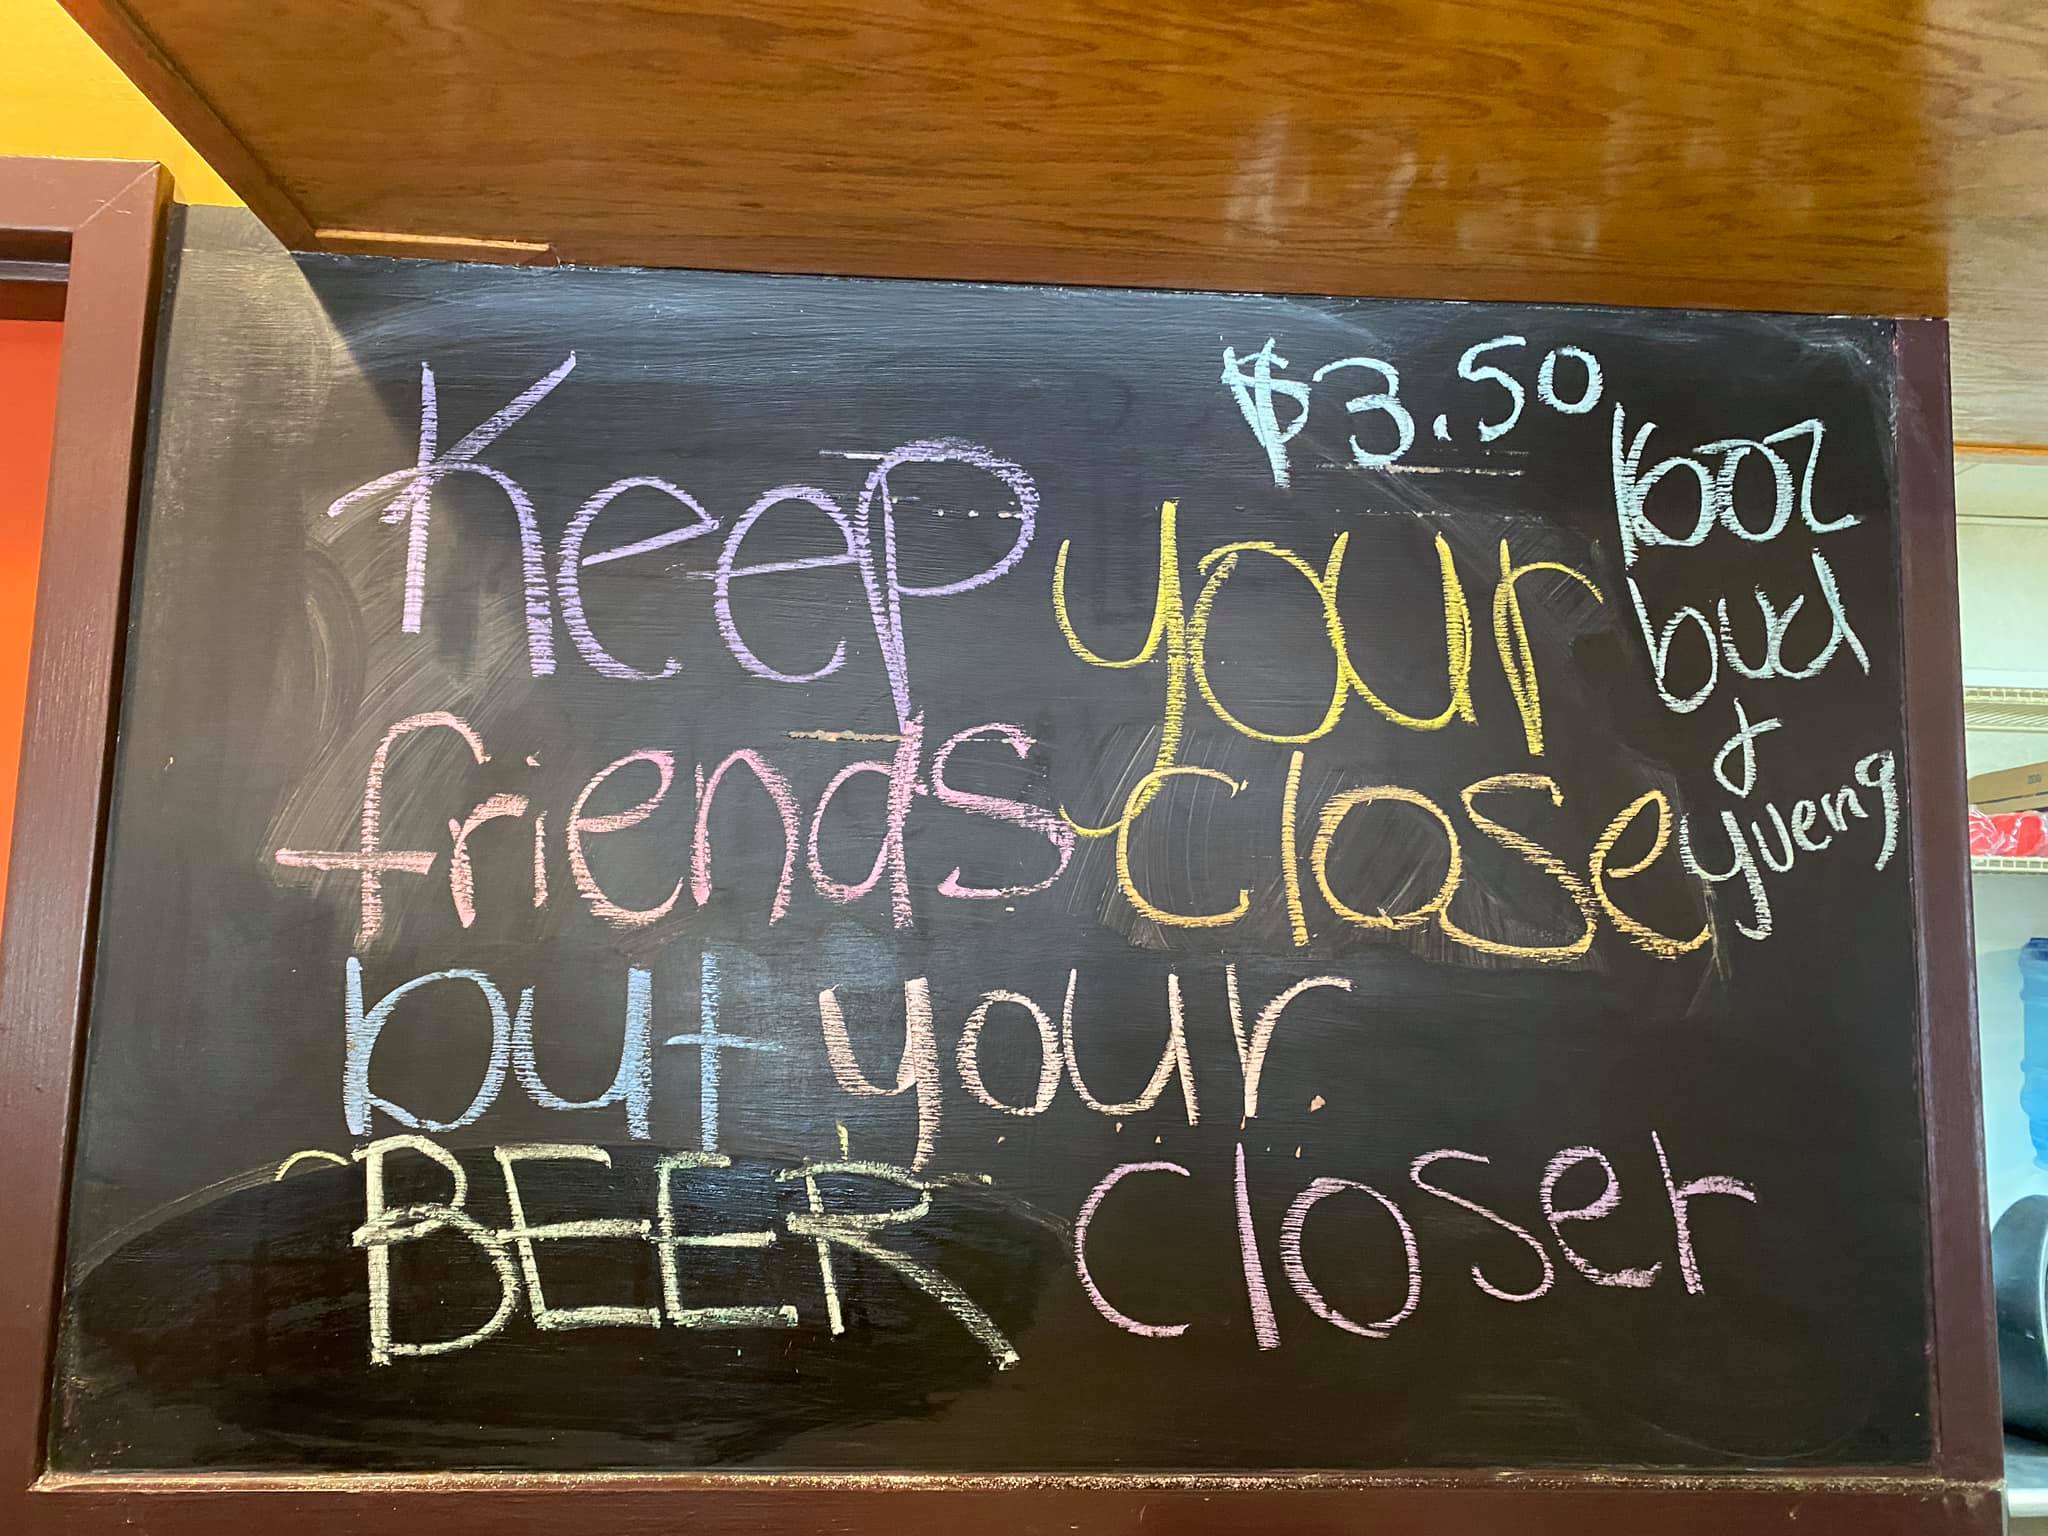 Keep your
friends close
but your
BEER closer
$3.50
16oz
bud
&
yueng